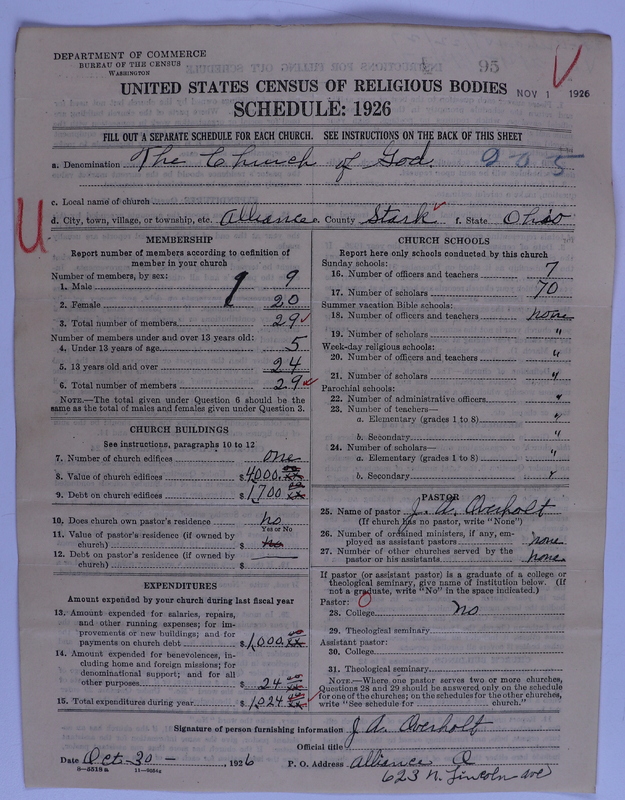 DEPARTMENT OF COMMERCE
BUREAU OF THE CENSUS
WASHINGTON
95
UNITED STATES CENSUS OF RELIGIOUS BODIES
NOV 1 1926
SCHEDULE: 1926
FILL OUT A SEPARATE SCHEDULE FOR EACH CHURCH. SEE INSTRUCTIONS ON THE BACK OF THIS SHEET
a. Denomination The Church of God. 905
c. Local name of church
U
d. City, town, village, or township, etc. Alliance e. County Stark f. State Ohio
MEMBERSHIP
Report number of members according to definition of
member in your church
Number of members, by sex:
1. Male 9
2. Female 20
3. Total number of members 29
Number of members under and over 13 years old:
4. Under 13 years of age 5
5. 13 years old and over 24
6. Total number of members 29
NOTE.—The total given under Question 6 should be
same as the total of males and females given under Question 3.
CHURCH BUILDINGS
See instructions, paragraphs 10 to 12
7. Number of church edifices one
8. Value of church edifices $4000.00
9. Debt on church edifices $1700 00
10. Does church own pastor's residence no
Yes or No
11. Value of pastor's residence (if owned by
church) $ no
12. Debt on pastor's residence (if owned by
church) $
EXPENDITURES
Amount expended by your church during last fiscal year
13. Amount expended for salaries, repairs,
and other running expenses; for im-
provements or new buildings; and for
payments on church debt $1,000.00
14. Amount expended for benevolences, in-
cluding home and foreign missions; for
denominational support; and for all
other purposes $ 24 00
15. Total expenditures during year $1,024 00
CHURCH SCHOOLS
Report here only schools conducted by this church
Sunday schools:
16. Number of officers and teachers 7
17. Number of scholars 70
Summer vacation Bible schools:
18. Number of officers and teachers none
19. Number of scholars "
Week-day religious schools:
20. Number of officers and teachers "
21. Number of scholars "
Parochial schools:
22. Number of administrative officers "
23. Number of teachers—
a. Elementary (grades 1 to 8) "
b. Secondary "
24. Number of scholars—
a. Elementary (grades 1 to 8) "
b. Secondary "
PASTOR
25. Name of pastor J. A. Overholt
(If church has no pastor, write "None")
26. Number of ordained ministers, if any, em-
ployed as assistant pastors none
27. Number of other churches served by the
pastor or his assistants none
If pastor (or assistant pastor) is a graduate of a college or
theological seminary, give name of institution below. (If
not a graduate, write "No" in the space indicated.)
Pastor: 0
28. College no
29. Theological seminary
Assistant pastor:
30. College
31. Theological seminary
NOTE.—Where one pastor serves two or more churches,
Questions 28 and 29 should be answered only on the schedule
for one of the churches; on the schedules for the other churches,
write "See schedule for church."
Signature of person furnishing information J. A. Overholt
Official title
Date Oct-30-, 1926 P. O. Address Alliance O
8—5518a 623 N. Lincoln ave